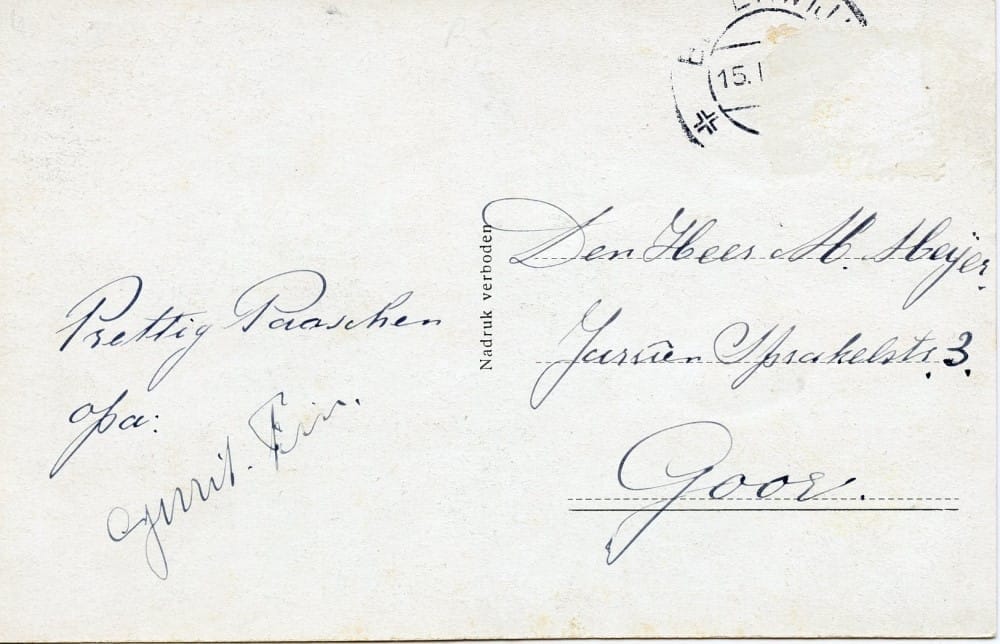 15.
Prettig Paaschen
opa:
Gerrit.
Nadruk verboden
Den Heer M. Meijer
Jurriën Sprakelstr. 3.
Goor.